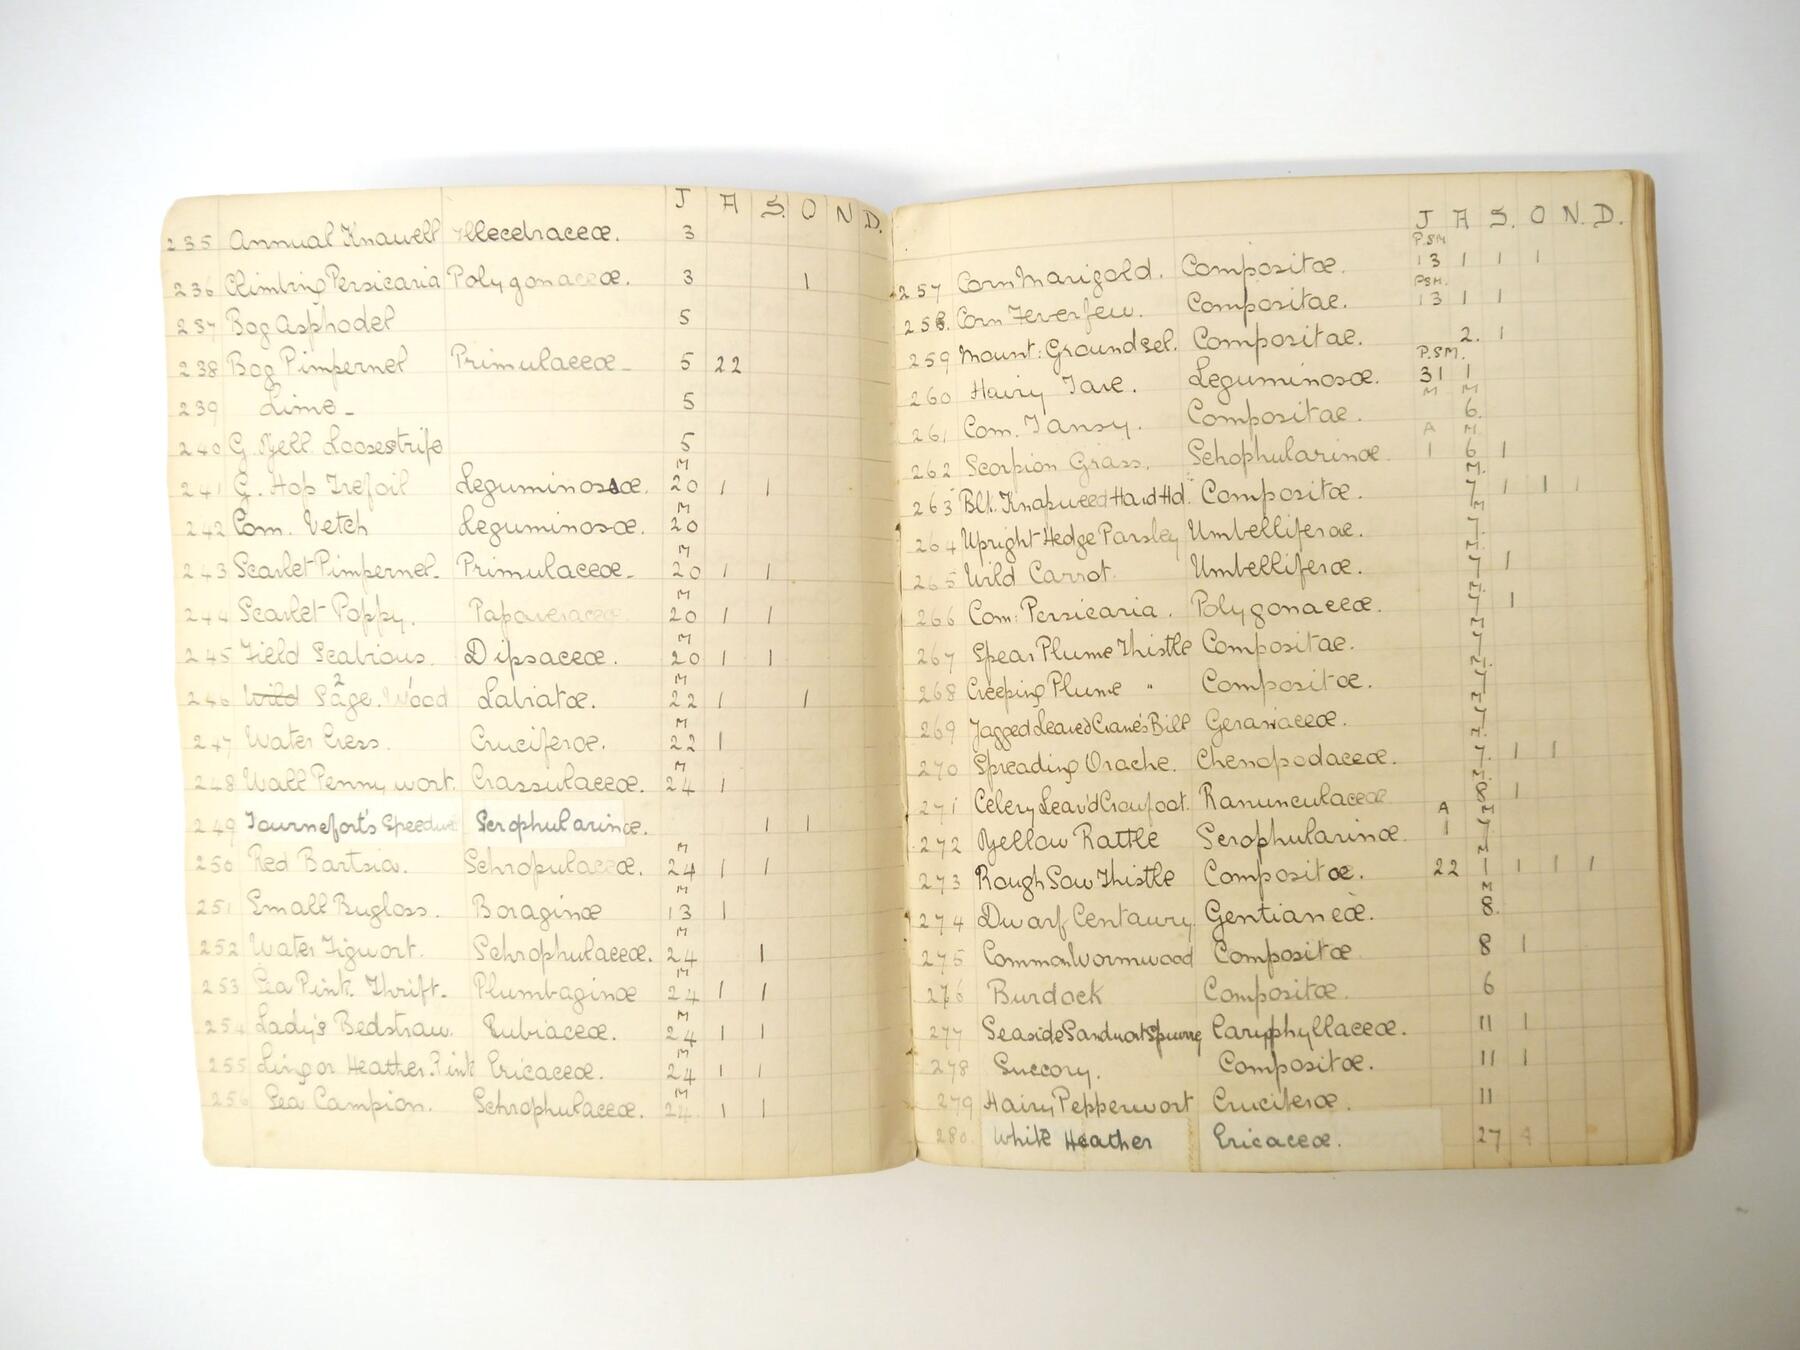 J A S. O N D.
235 Annual Knawell Illecebraceæ. 3
236 Climbing Persicaria Polygonaceæ. 3 1
237 Bog Asphodel 5
238 Bog Pimpernel Primulaceæ - 5 22
239 Lime - 5
240 G. Yell. Loosestrife 5
M
241 G. Hop Trefoil Leguminosæ. 20 1 1
M
242 Com. Vetch Leguminosæ. 20
M
243 Scarlet Pimpernel - Primulaceæ - 20 1 1
M
244 Scarlet Poppy. Papaveraceæ 20 1 1
M
245 Field Scabious. Dipsaceæ. 20 1 1
M
246 Wild Sage. Wood Labiatæ. 22 1 1
M
247 Water Cress. Cruciferæ. 22 1
M
248 Wall Pennywort. Crassulaceæ. 24 1
249 Tournefort's Speedwell Scrophularinæ. 1 1
M
250 Red Bartsia. Schropulaceæ. 24 1 1
M
251 Small Bugloss. Boraginæ 13 1
M
252 Water Figwort. Schrophulaceæ. 24 1
M
253 Sea Pink. Thrift - Plumbaginæ 24 1 1
M
254 Lady's Bedstraw. Rubiaceæ. 24 1 1
M
255 Ling or Heather. Pink Ericaceæ. 24 1 1
M
256 Sea Campion. Schrophulaceæ. 24 1 1
J A S. O N. D.
P.SM
257 Corn Marigold. Compositæ. 13 1 1 1
PSM.
258. Corn Feverfew. Compositae. 13 1 1
259 Mount: Groundsel. Compositae. 2. 1
P.SM.
260 Hairy Tare. Leguminosæ. 31 1
M M
261 Com. Tansy. Compositae. 6.
A M.
262 Scorpion Grass. Schophularinæ. 1 6 1
M.
263 Blk. Knapweed Hard Hd. Compositæ. 7 1 1 1
M
264 Upright Hedge Parsley Umbelliferæ. 7.
M.
265 Wild Carrot. Umbelliferæ. 7 1
M.
266 Com: Persicaria. Polygonaceæ. 7 1
M
267 Spear Plume Thistle Compositae. 7
M.
268 Creeping Plume " Compositæ. 7
M
269 Jagged Leaved Crane's Bill Geraniaceæ. 7
M.
270 Spreading Orache. Chenopodaceæ. 7. 1 1
M.
271 Celery Leav'd Crowfoot. Ranunculaceæ 8 1
A M
272 Yellow Rattle Scrophularinæ. 1 7
M
273 Rough Sow Thistle Compositæ. 22 1 1 1 1
M
274 Dwarf Centaury. Gentianeæ. 8.
275 Common Wormwood Compositæ 8 1
276 Burdock Compositæ. 6
277 Seaside Sandwort Spurrey Caryphyllaceæ. 11 1
278 Succory. Compositæ. 11 1
279 Hairy Pepperwort Cruciferæ. 11
280. White Heather Ericaceæ. 27